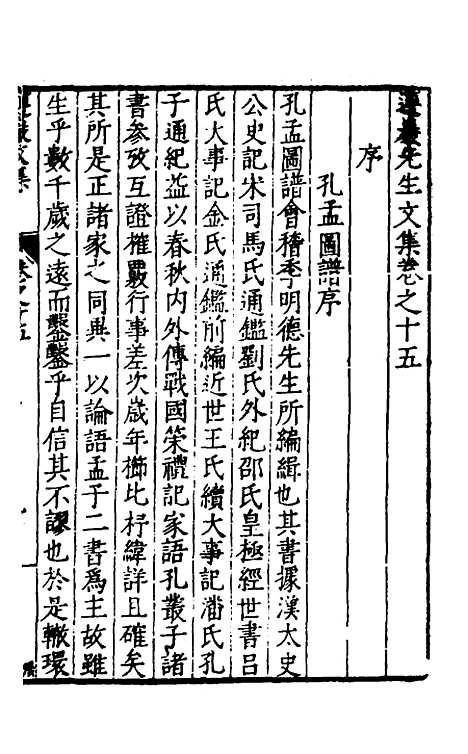 遵巖先生文集卷之十五
序
孔孟圖譜序
孔孟圖譜會稽季明德先生所編緝也其書據漢太史
公史記宋司馬氏通鑑劉氏外紀邵氏皇極經世書呂
氏大事記金氏通鑑前編近世王氏續大事記潘氏孔
子通紀益以春秋内外傳戰國策禮記家語孔叢子諸
書参攷互證榷覈行事差次歲年櫛比杼緯詳且確矣
其所是正諸家之同異一以論語孟子二書爲主故雖
生乎數千歲之遠而鑿鑿乎自信其不謬也於是轍環